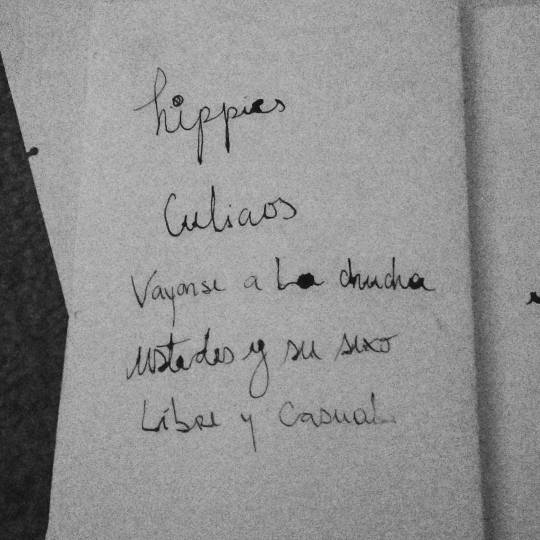 hippies
Culiaos
Vayanse a la chucha
ustedes y su sexo
Libre y Casual